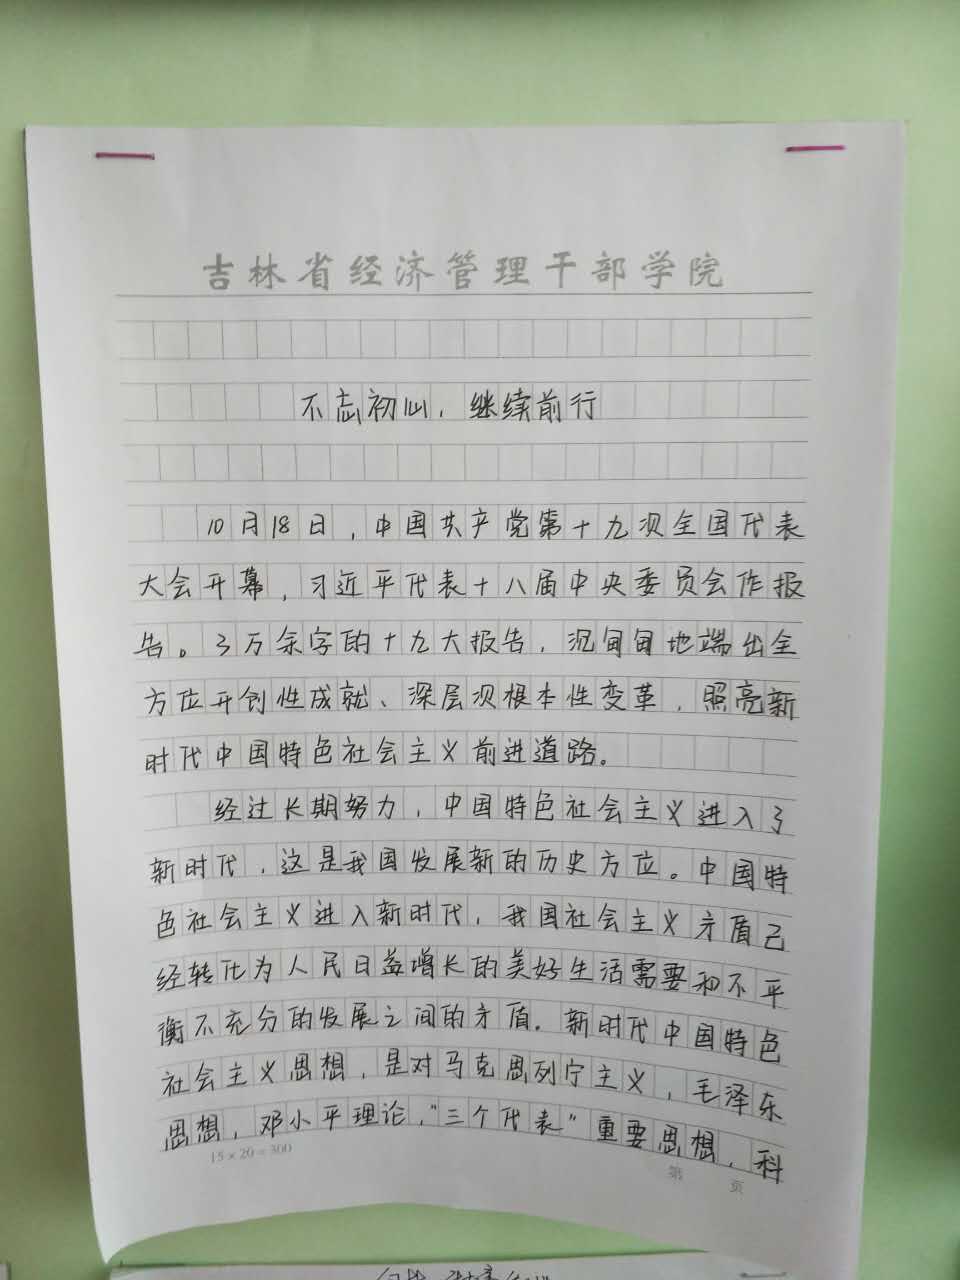 吉林省经济管理干部学院
不忘初心，继续前行
10月18日，中国共产党第十九次全国代表
大会开幕，习近平代表十八届中央委员会作报
告。3万余字的十九大报告，沉甸甸地端出全
方位开创性成就、深层次根本性变革，照亮新
时代中国特色社会主义前进道路。
经过长期努力，中国特色社会主义进入了
新时代，这是我国发展新的历史方位。中国特
色社会主义进入新时代，我国社会主义矛盾已
经转化为人民日益增长的美好生活需要和不平
衡不充分的发展之间的矛盾。新时代中国特色
社会主义思想，是对马克思列宁主义，毛泽东
思想，邓小平理论，“三个代表”重要思想，科
15×20=300
第 页